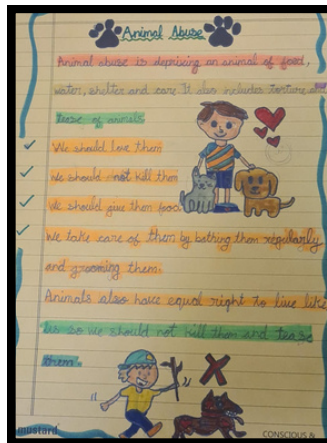 Animal Abuse
Animal abuse is deprising an animal of food,
water, shelter and care. It also includes torture and
tease of animals
We should love them
We should not kill them
We should give them food.
We take care of them by bathing them regularly
and grooming them.
Animals also have equal right to live like
us so we should not kill them and tease
them.
mustard
CONSCIOUS &